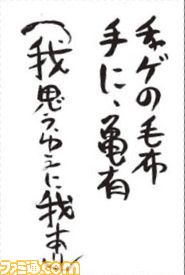 チゲの毛布
手に、亀有
(我思うゆえに我ありﾉ
ファミ通.com